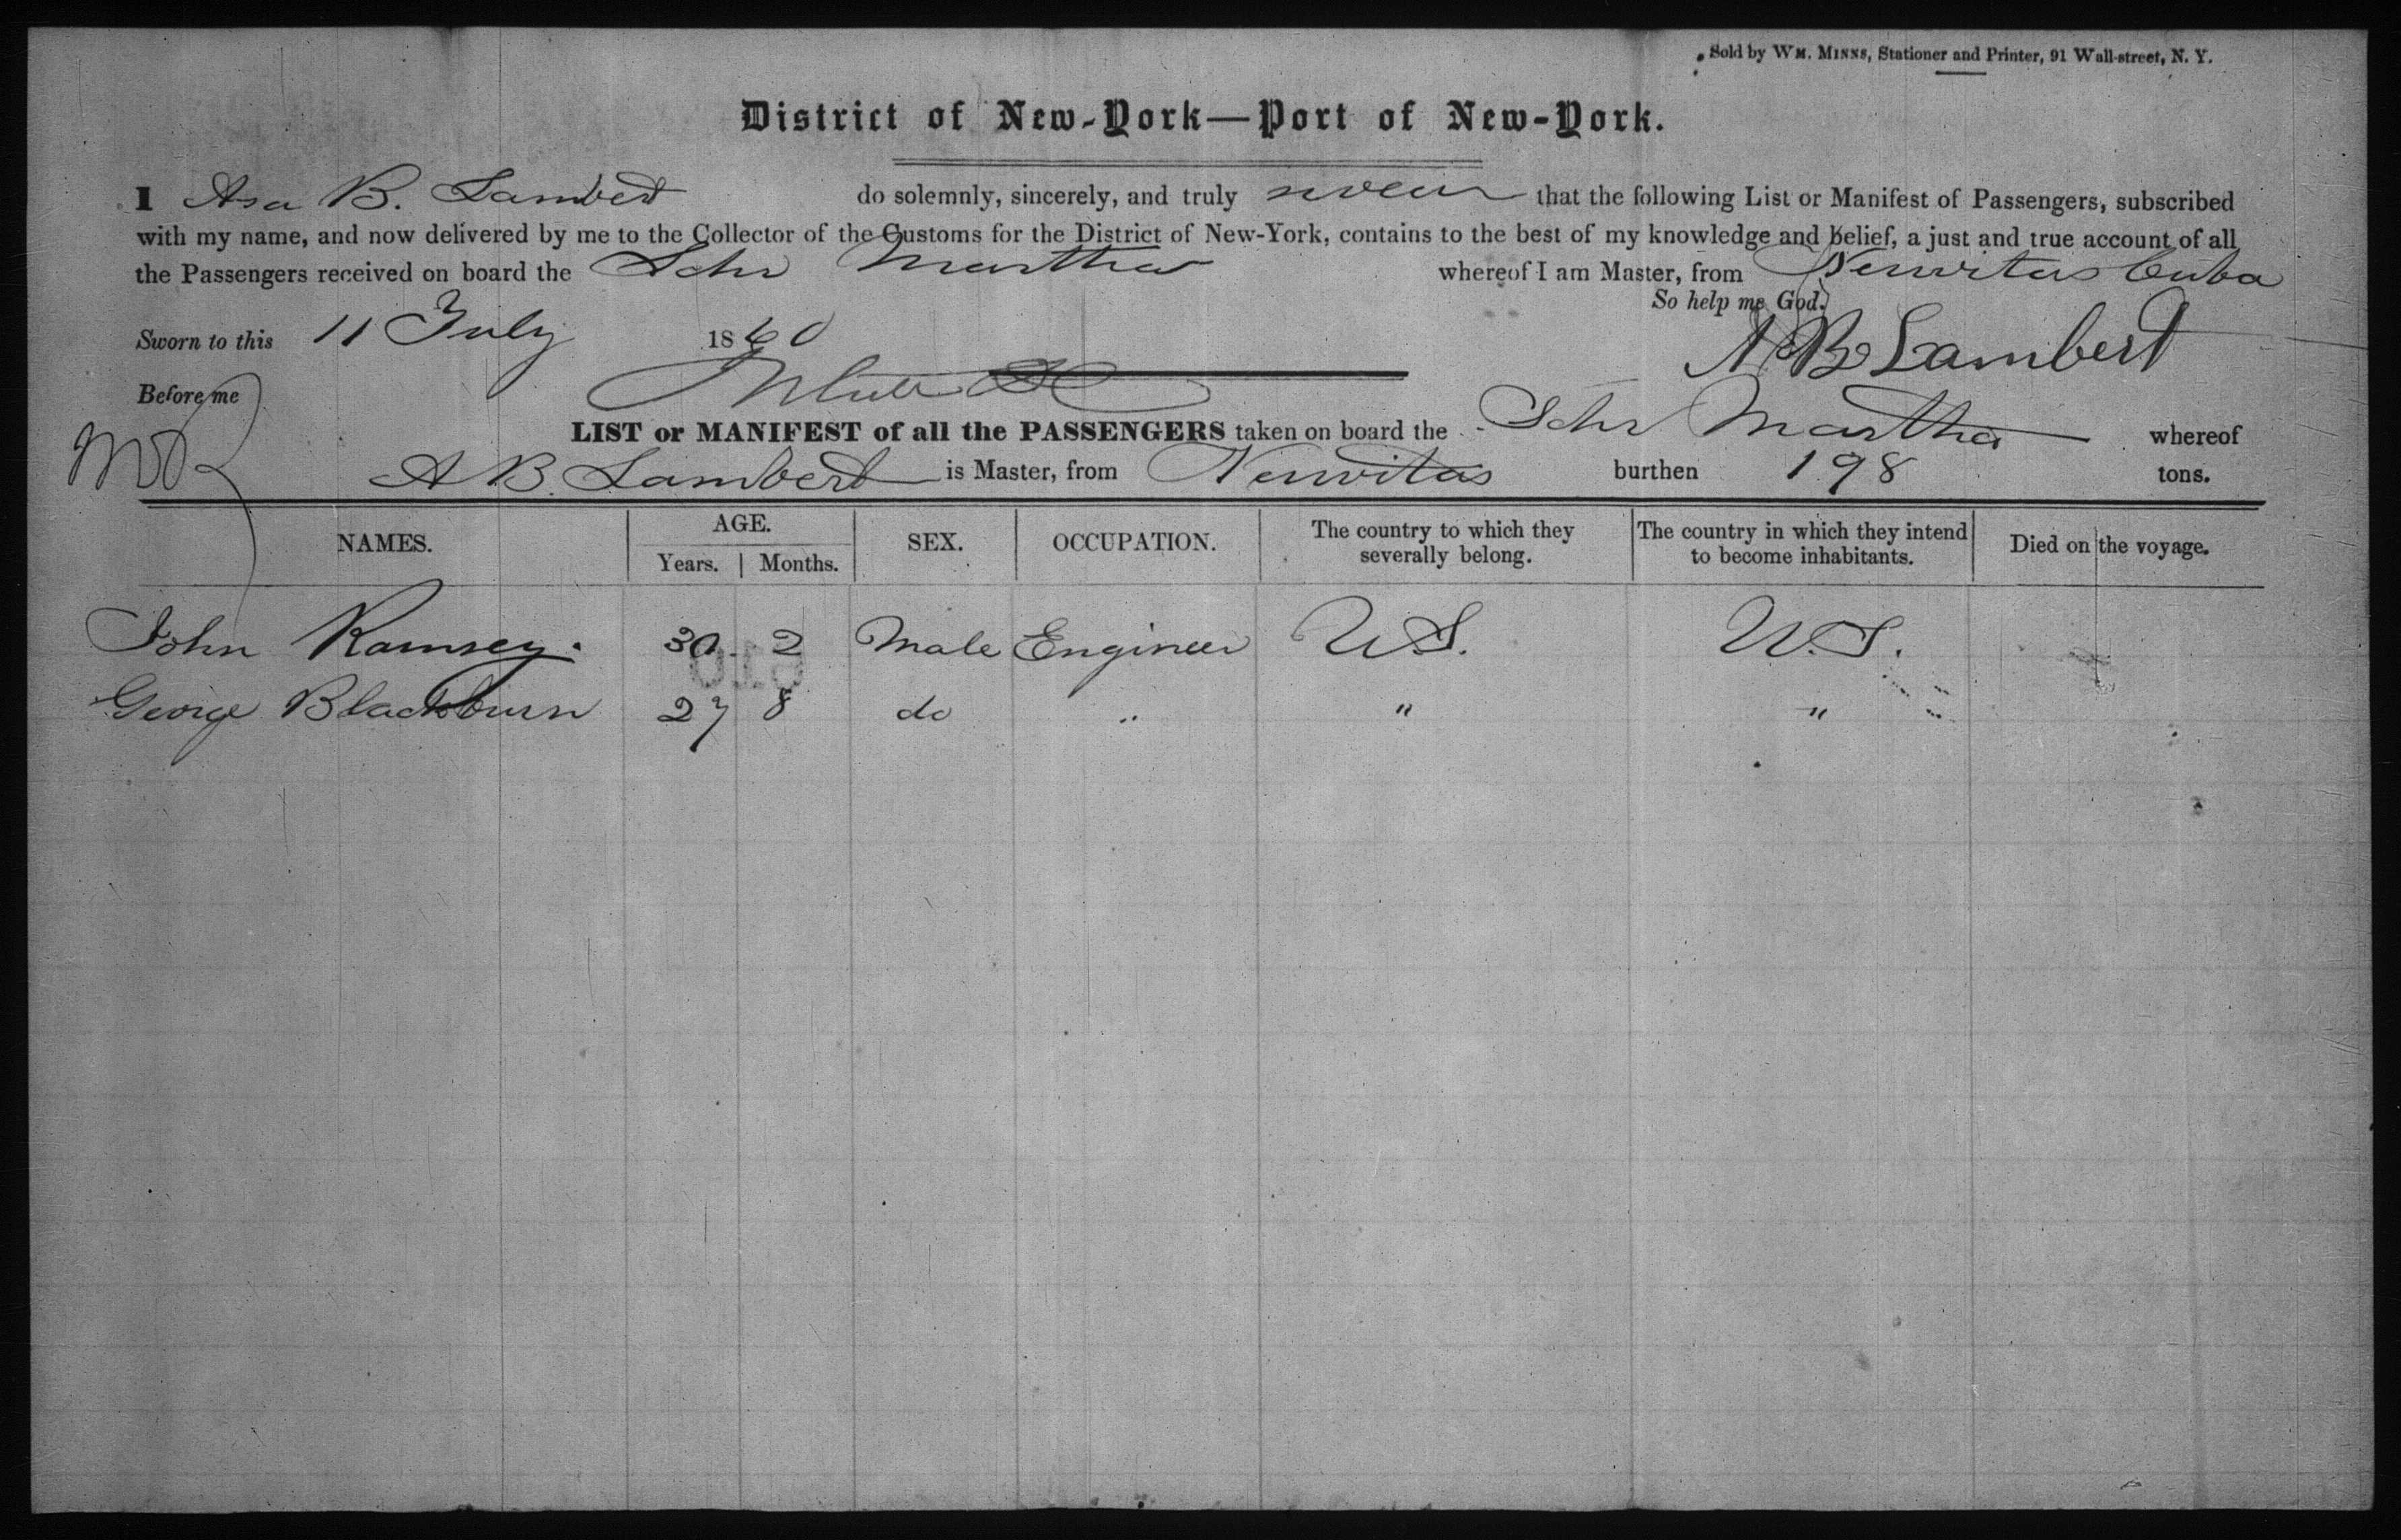 Sold by WM. MINNS, Stationer and Printer, 91 Wall-street, N. Y.
District of New-York—Port of New-York.
I Asa B. Lambert do solemnly, sincerely, and truly swear that the following List or Manifest of Passengers, subscribed
with my name, and now delivered by me to the Collector of the Customs for the District of New-York, contains to the best of my knowledge and belief, a just and true account of all
the Passengers received on board the Schr Martha whereof I am Master, from Neuvitas Cuba
So help me God.
Sworn to this 11 July 1860
A B Lambert
Before me
LIST or MANIFEST of all the PASSENGERS taken on board the Schr Martha whereof
A B. Lambert is Master, from Neuvitas burthen 198 tons.
NAMES. AGE. Years. Months. SEX. OCCUPATION. The country to which they severally belong. The country in which they intend to become inhabitants. Died on the voyage.
John Ramsey. 30 2 Male Engineer U.S. U.S.
George Blackburn 27 8 do " " "